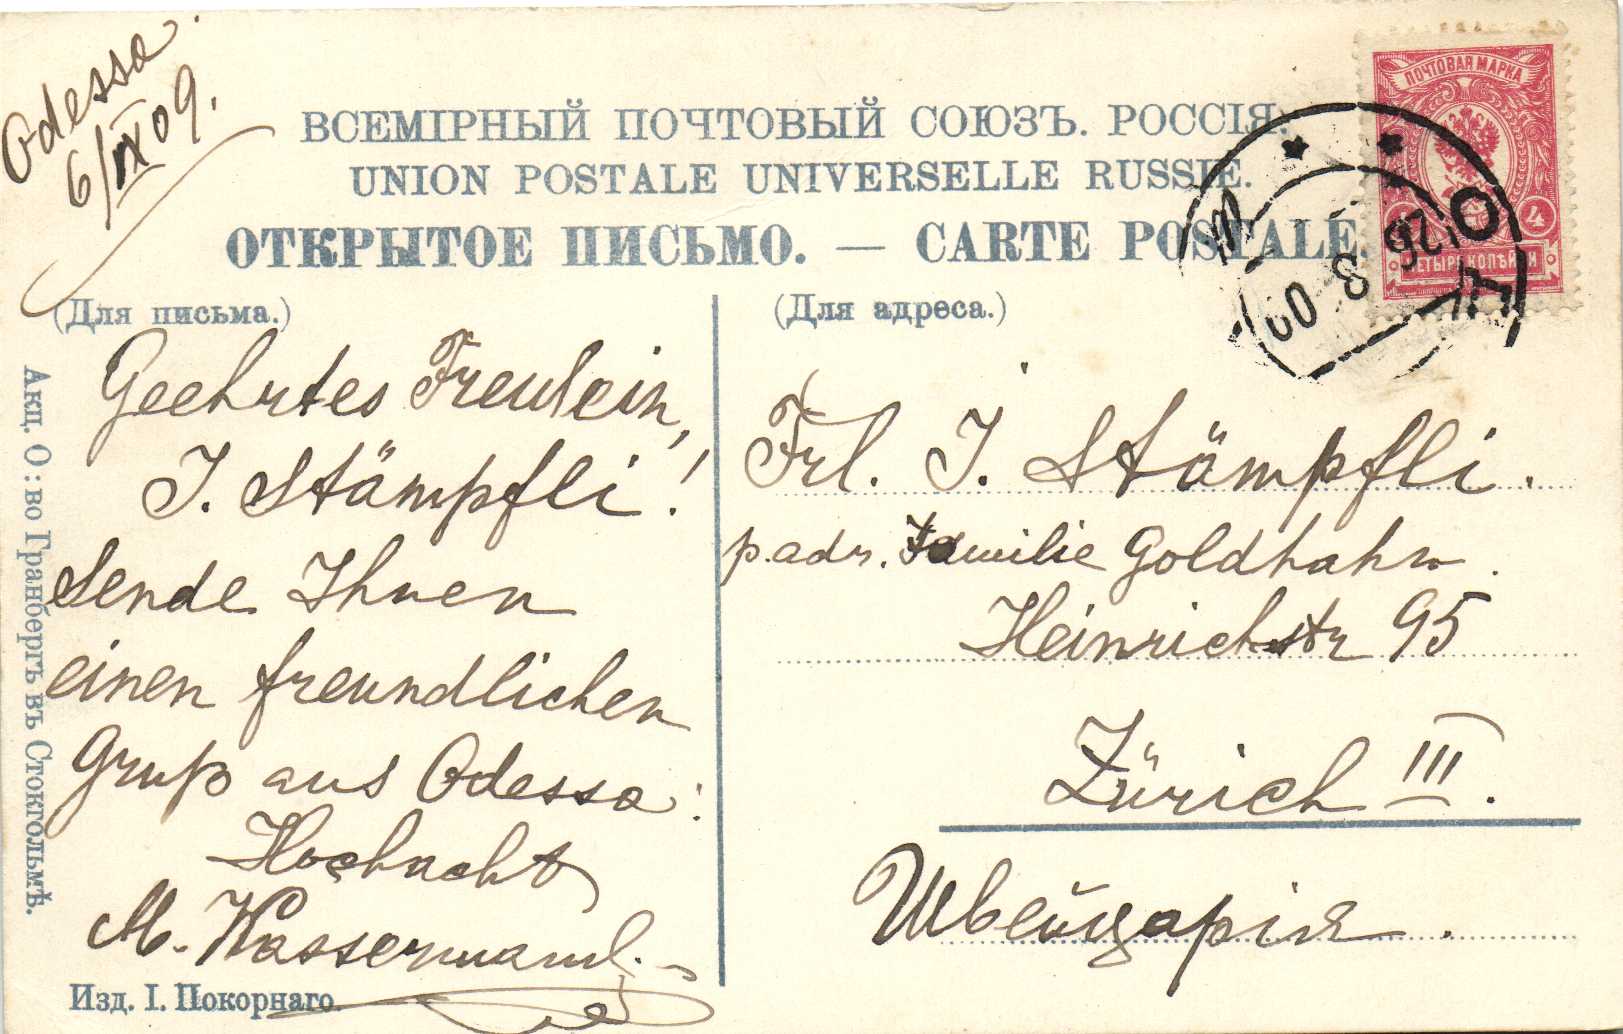 Odessa
6/IX 09.
ВСЕМІРНЫЙ ПОЧТОВЫЙ СОЮЗЪ. РОССІЯ.
UNION POSTALE UNIVERSELLE RUSSIE.
ОТКРЫТОЕ ПИСЬМО. — CARTE POSTALE.
ПОЧТОВАЯ МАРКА
4
ЧЕТЫРЕ КОПѢЙКИ
26 8 09
(Для письма.)
Geehrtes Freulein,
J. Stämpfli!
Sende Ihnen
einen freundlichen
Gruß aus Odessa:
Hochacht
M. Wassermann.
(Для адреса.)
Frl. J. Stämpfli.
p. adr. Familie Goldhahn.
Heinrichstr 95
Zürich III.
Швейцарія.
Акц. О:во Гранбергъ въ Стокгольмѣ.
Изд. І. Покорнаго